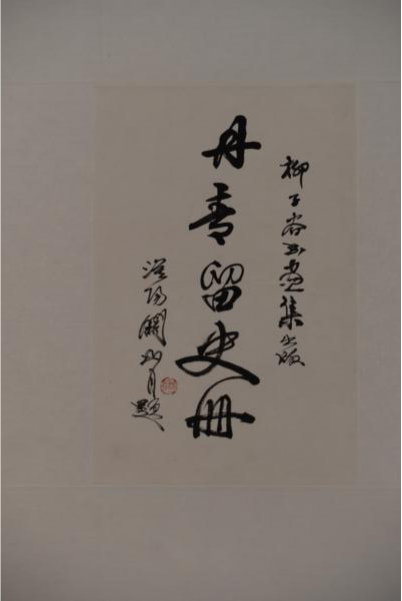 柳子谷书畫集出版
丹青留史册
漠陽關山月題